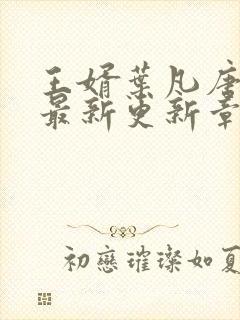 王婿葉凡唐
最新更新章
初戀璀璨如夏